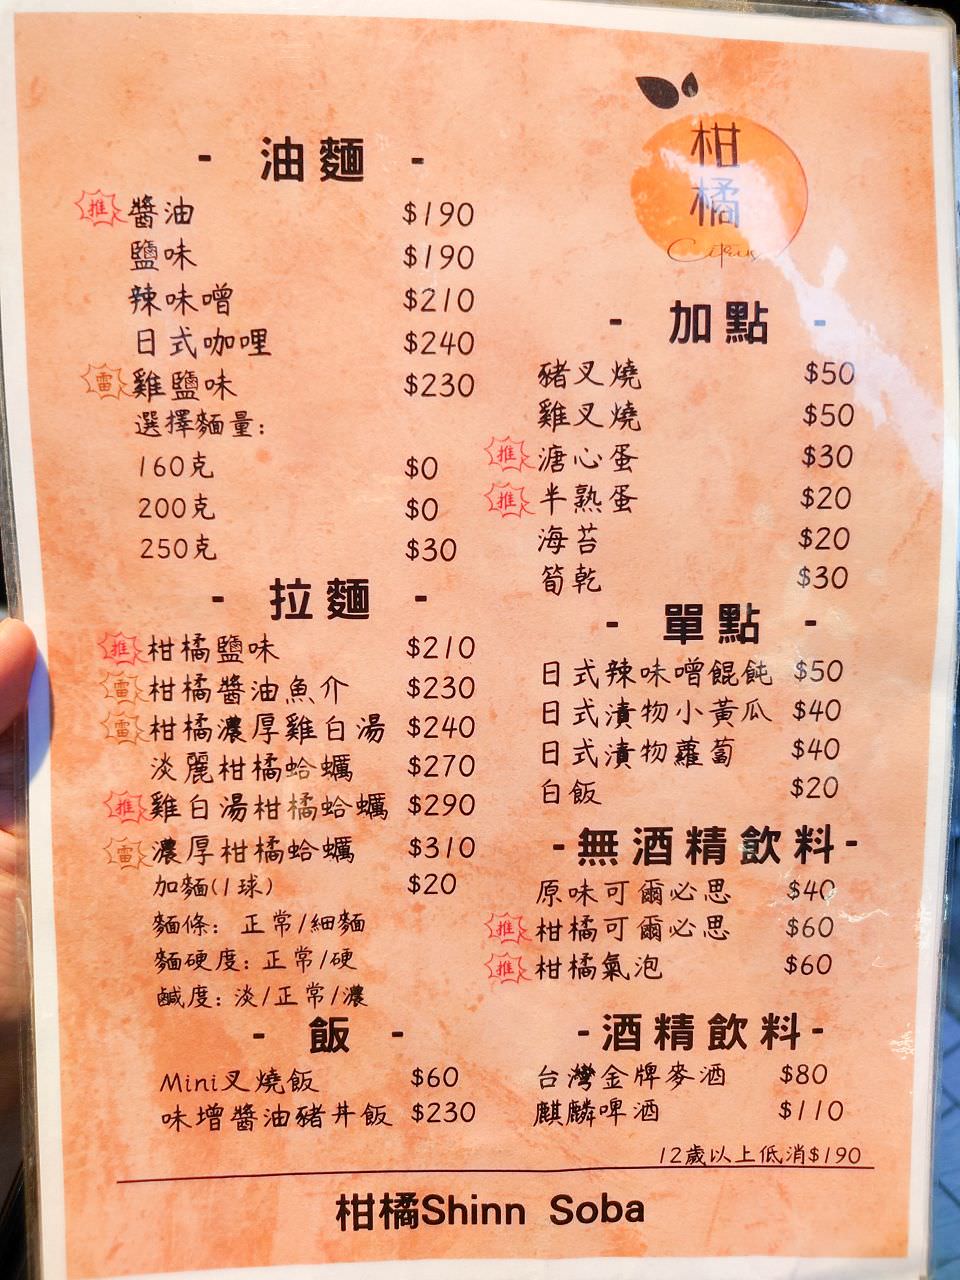 - 油麵 -
推 醬油 $190
鹽味 $190
辣味噌 $210
日式咖哩 $240
雷 雞鹽味 $230
選擇麵量:
160克 $0
200克 $0
250克 $30
- 拉麵 -
推 柑橘鹽味 $210
雷 柑橘醬油魚介 $230
雷 柑橘濃厚雞白湯 $240
淡麗柑橘蛤蠣 $270
推 雞白湯柑橘蛤蠣 $290
雷 濃厚柑橘蛤蠣 $310
加麵(1球) $20
麵條: 正常/細麵
麵硬度: 正常/硬
鹹度: 淡/正常/濃
- 飯 -
Mini叉燒飯 $60
味增醬油豬丼飯 $230
柑
橘
Citrus
- 加點 -
豬叉燒 $50
雞叉燒 $50
推 溏心蛋 $30
推 半熟蛋 $20
海苔 $20
筍乾 $30
- 單點 -
日式辣味噌餛飩 $50
日式漬物小黃瓜 $40
日式漬物蘿蔔 $40
白飯 $20
-無酒精飲料-
原味可爾必思 $40
推 柑橘可爾必思 $60
推 柑橘氣泡 $60
-酒精飲料-
台灣金牌麥酒 $80
麒麟啤酒 $110
12歲以上低消$190
柑橘Shinn Soba